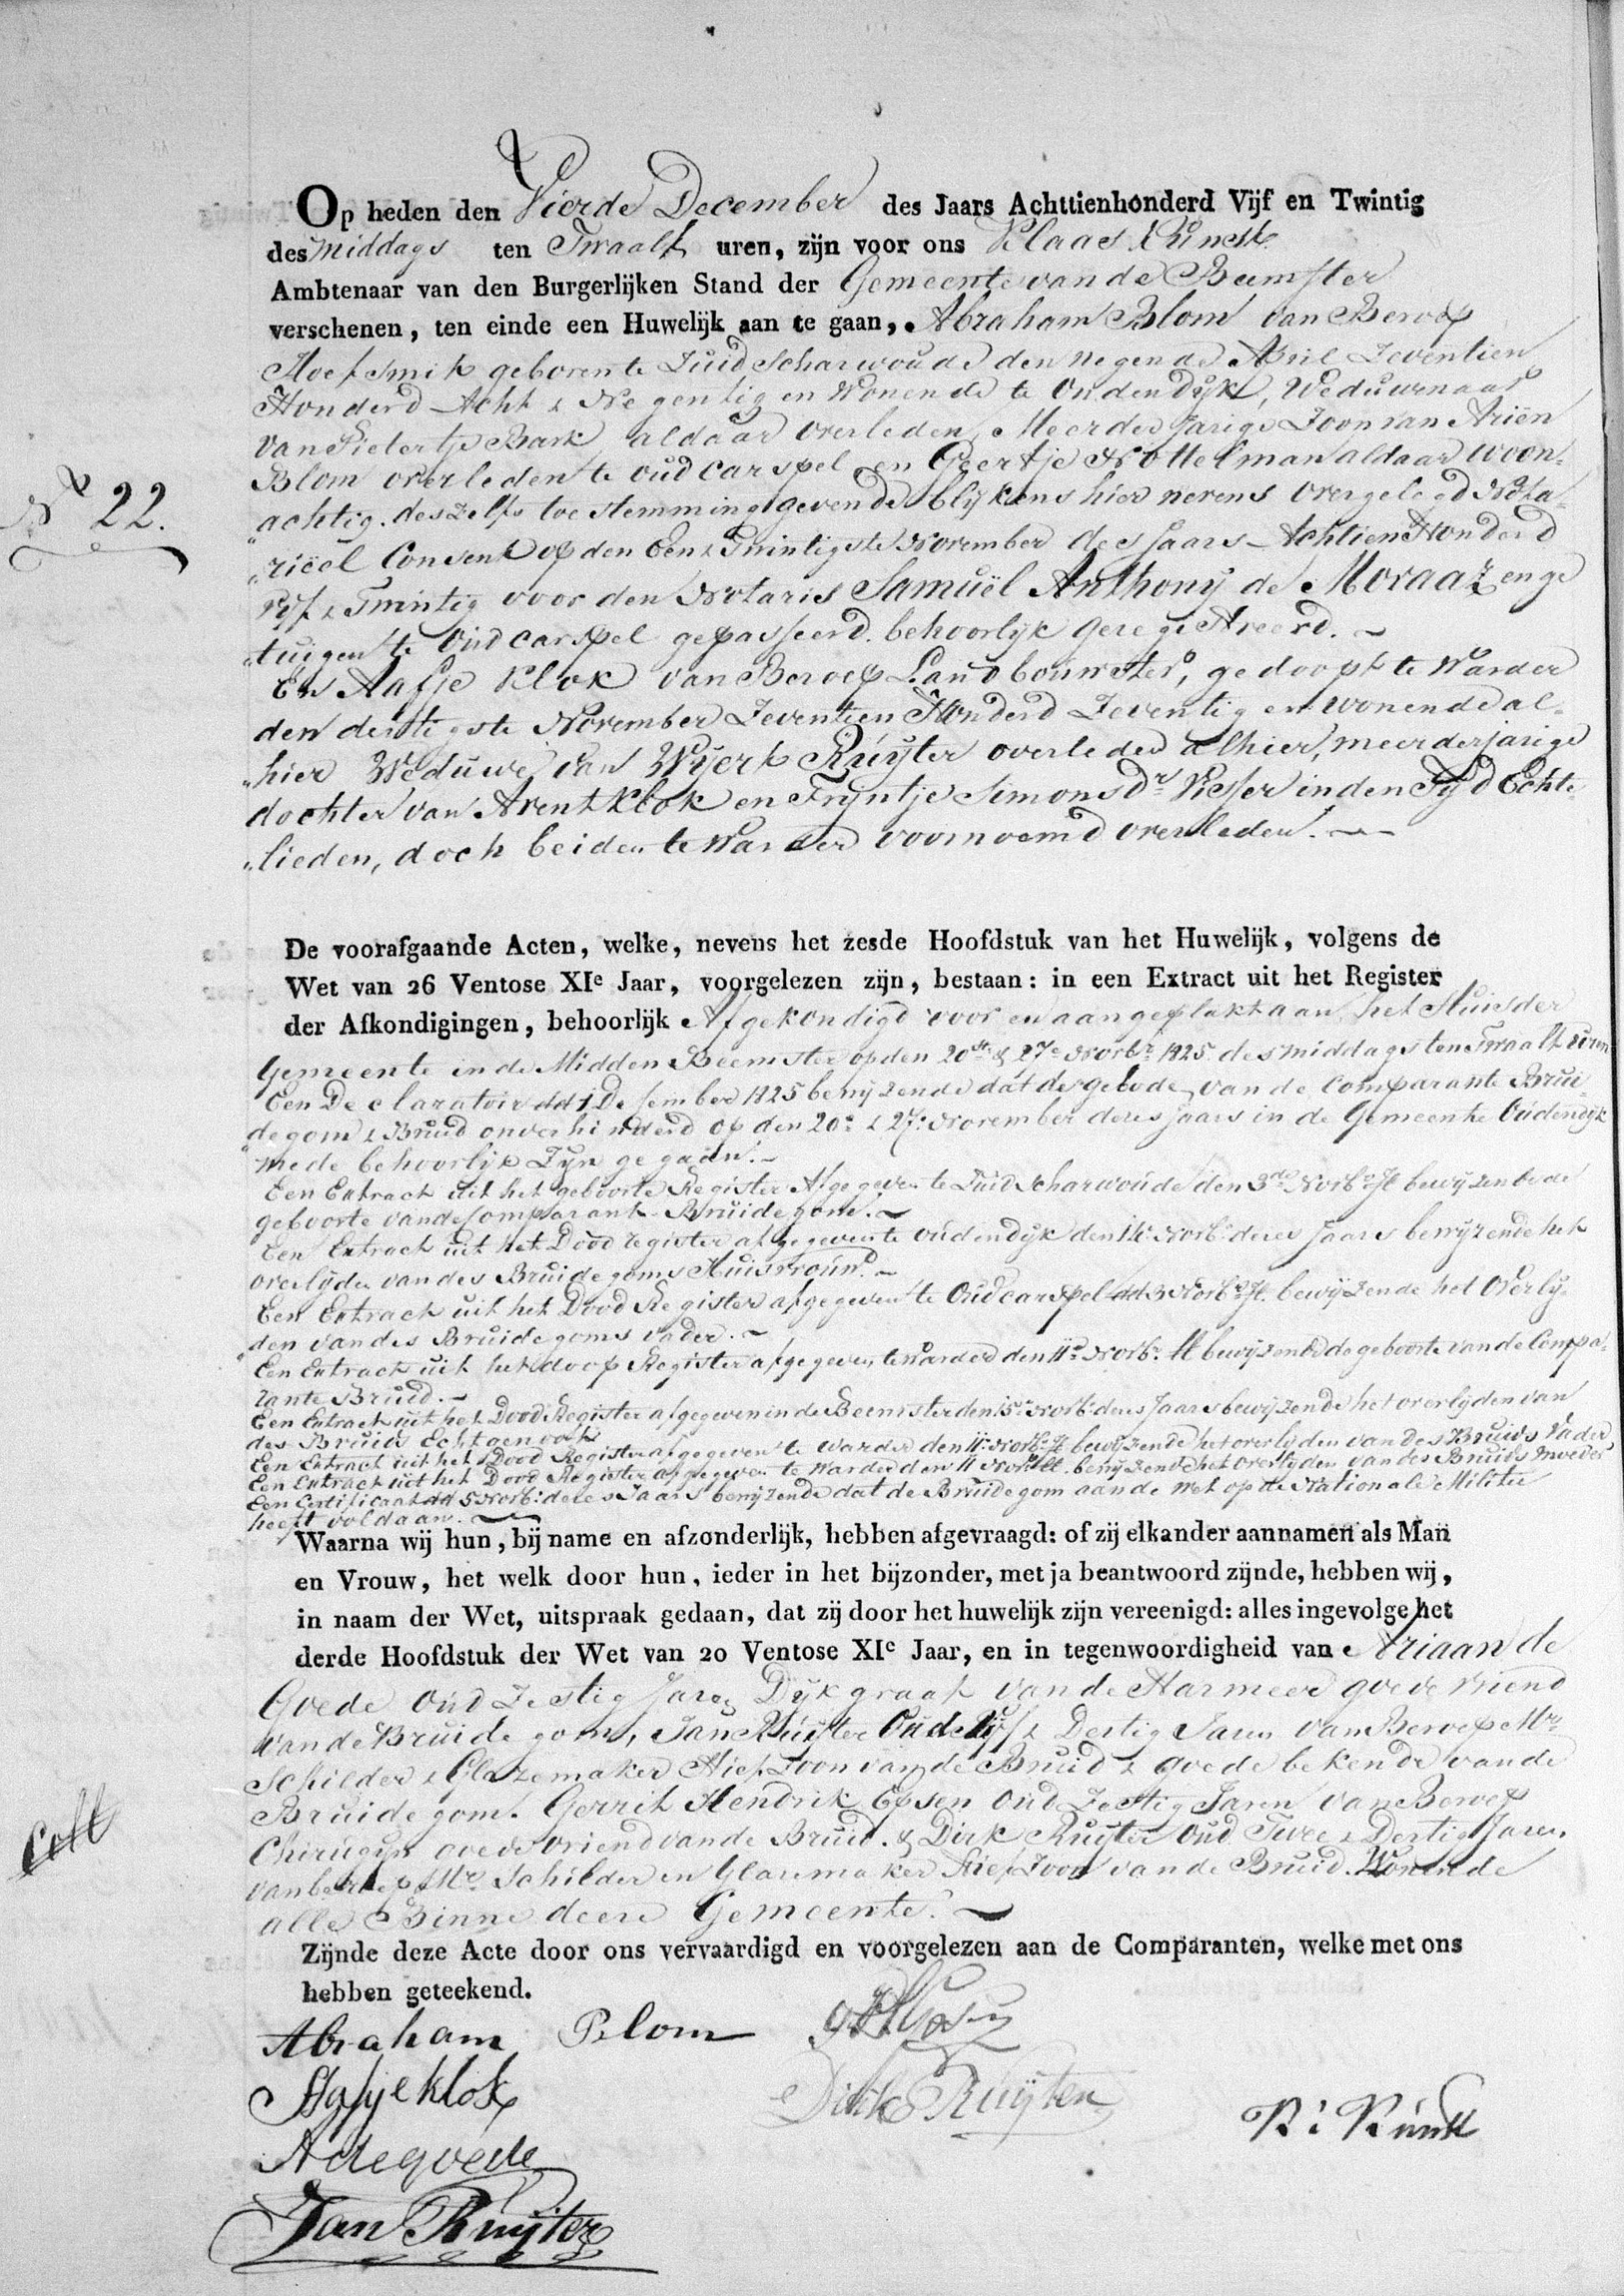 Op heden den Vierde December des Jaars Achttienhonderd Vijf en Twintig
des middags ten Twaalf uren, zijn voor ons Klaas
Ambtenaar van den Burgerlijken Stand der Gemeente van de Beemster
verschenen, ten einde een Huwelijk aan te gaan, Abraham Blom van Beroep
Hoefsmit geboren te Zuid Scharwoude den negende April Zeventien
Honderd Acht & Negentig en Wonende te Oudendijk, Weduwenaar
van Pietertje Bark aldaar overleden, Meerderjarige Zoon van Ariën
Blom overleden te oudcarspel en Geertje Nottelman aldaar woon„
N° 22.
„achtig. deszelfs toestemming gevende blijkens hier nevens overgelegd Nota„
„riëel Consent op den Een & Twintigste November dees Jaars Achtien Honderd
Vijf & Twintig voor den Notaris Samuël Anthonij de Moraaz en ge
„tuigen te Oudcarspel gepasseerd. behoorlijk geregistreerd. ~
En Aafje Klok van Beroep Landbouwster, gedoopt te Warder
den dertigste November Zeventien Honderd Zeventig en wonende al„
„hier Weduwe van Wijert Ruijter overleden alhier, meerderjarige
dochter van Arent Klok en Trijntje Simons Dr Visser in den Tijd Echte„
„lieden, doch beiden te Warder voornoemd overleden. ~
De voorafgaande Acten, welke, nevens het zesde Hoofdstuk van het Huwelijk, volgens de
Wet van 26 Ventose XIe Jaar, voorgelezen zijn, bestaan: in een Extract uit het Register
der Afkondigingen, behoorlijk Afgekondigd voor en aangeplakt aan het Huis der
Gemeente in de Midden Beemster op den 20st & 27e Novbr 1825 des middags ten Twaalf uren
Een Declaratoir dd 1 December 1825 bewijzende dat de gebode van de Comparante Brui„
degom & Bruid onverhinderd op den 20e & 27e November dezes jaars in de Gemeente Oudendijk
mede behoorlijk Zijn gegaan. ~
Een Extract uit het geboorte Register Afgegeven te Zuid Scharwoude den 3de Novbr jl bewijzende de
geboorte van de Comparant Bruidegom. ~
Een Extract uit het Dood register afgegeven te Oudendijk den 14e Novbr dezes Jaars bewijzende het
overlijden van des Bruidegoms Huisvrouw. ~
Een Extract uit het Dood Register afgegeven te Oudcarspel dd 3 Novbr jl. bewijzende het Overlij„
den van des Bruidegoms vader. ~
Een Extract uit het doop Register afgegeven te Warder den 11e Novbr jl bewijzende de geboorte van de Compa„
rante Bruid. ~
Een Extract uit het Dood Register afgegeven in de Beemster den 15e Novbr dezes Jaars bewijzende het overlijden van
des Bruids Echtgenoot
Een Extract uit het Dood Register afgegeven te Warder den 11e Novbr jl bewijzende het overlijden van des Bruids Vader
Een Extract uit het Dood Register afgegeven te Warder den 11 Novbr jl. bewijzende het overlijden van des Bruids moeder
Een Certificaat dd 5 Novbr dezes Jaars bewijzende dat de Bruidegom aan de Wet op de Nationale Militie
heeft voldaan. ~
Waarna wij hun, bij name en afzonderlijk, hebben afgevraagd: of zij elkander aannamen als Man
en Vrouw, het welk door hun, ieder in het bijzonder, met ja beantwoord zijnde, hebben wij,
in naam der Wet, uitspraak gedaan, dat zij door het huwelijk zijn vereenigd: alles ingevolge het
derde Hoofdstuk der Wet van 20 Ventose XIe Jaar, en in tegenwoordigheid van Ariaan de
Goede Oud Zestig Jaren Dijkgraaf van de Starmeer goede vriend
van de Bruidegom, Jan Ruijter Oud Vijf & Dertig Jaren van Beroep Mr
Schilder & Glazemaker Stief Zoon van de Bruid & goede bekende van de
Bruidegom. Gerrit Hendrik Epsen Oud Zestig Jaren van Beroep
Chirugijn goede vriend van de Bruid. & Dirk Ruijter Oud Twee & Dertig Jaren
van beroep Mr Schilder en Glasemaker Stief Zoon van de Bruid. Wonende
alle Binne deere Gemeente. ~
Zijnde deze Acte door ons vervaardigd en voorgelezen aan de Comparanten, welke met ons
hebben geteekend.
Abraham Blom
Aafje klok
Dirk Ruijter
A de goede
Jan Ruijter